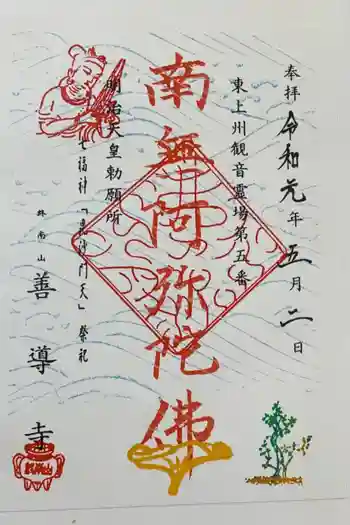 奉拝
令和元年五月二日
東上州観音霊場第五番
南無阿弥陀佛
明治天皇勅願所
七福神「毘沙門天」祭祀
終南山
善導寺